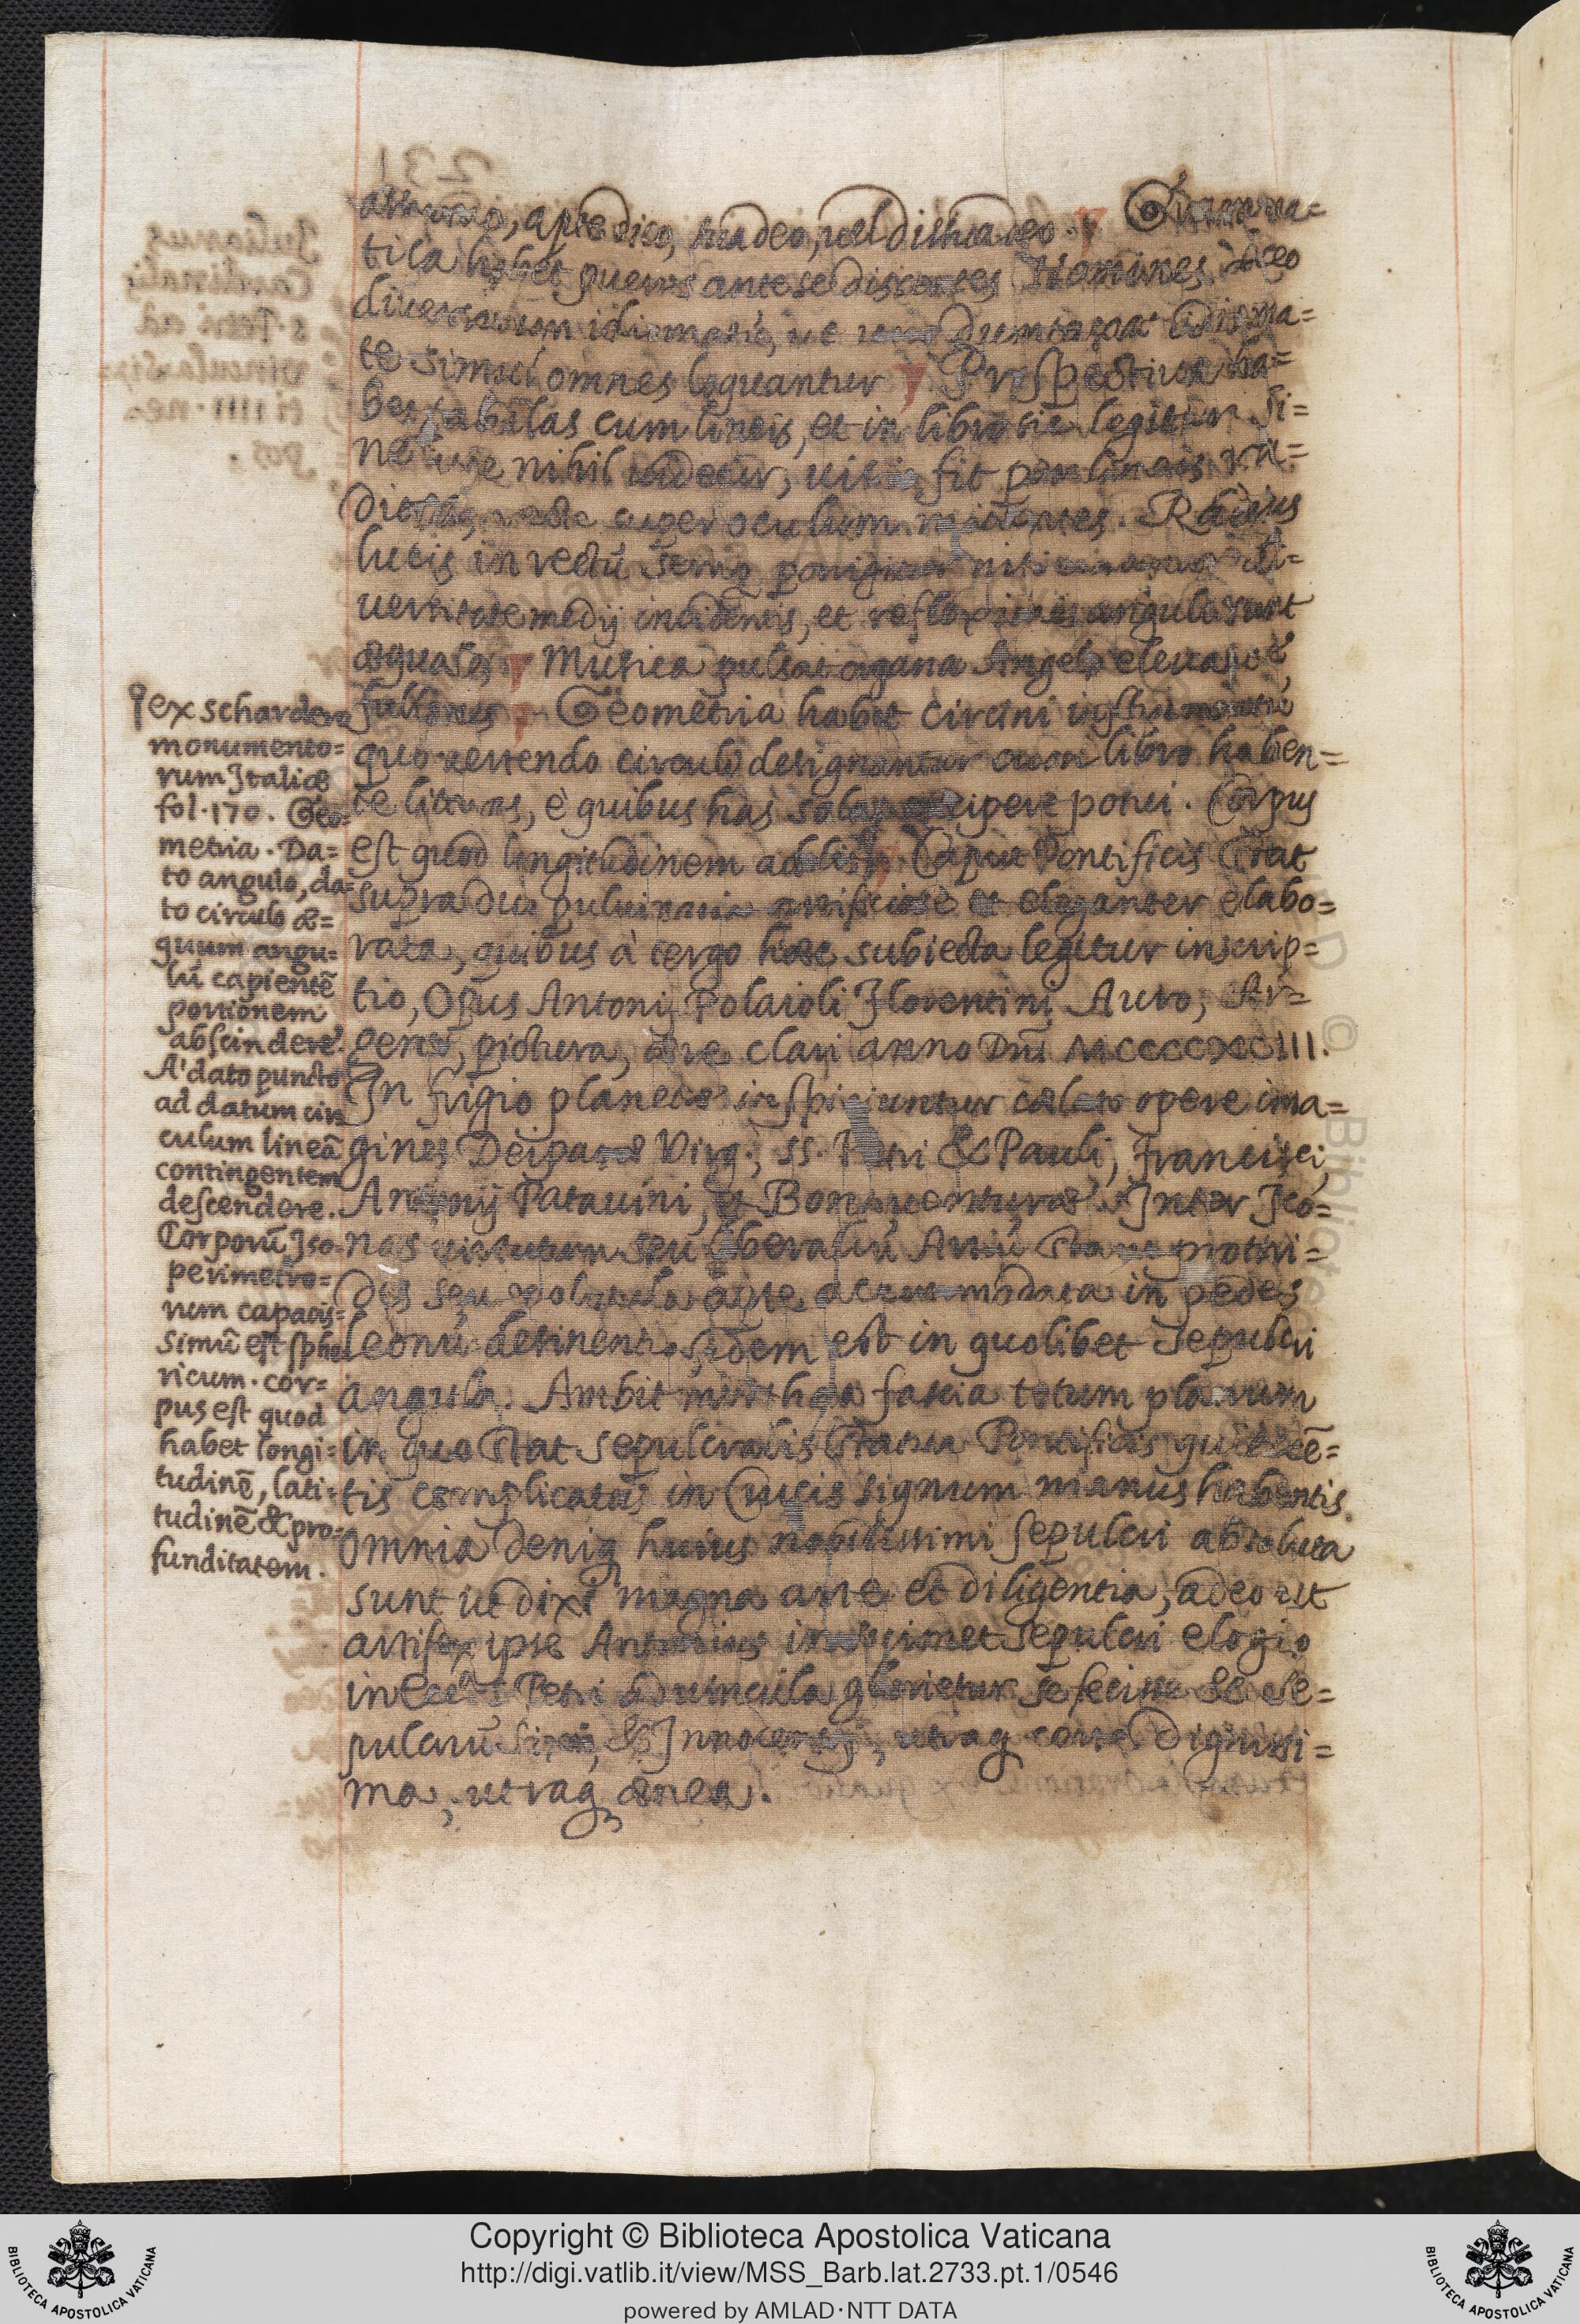 suadeo, vel dissuadeo. Gramma=
tica habet pueros ante se discentes Homines
diversorum idiomatũ, ut uno dumtaxat idioma=
te simul omnes loquantur Prospectiva ha=
bet tabellas cum lineis, et in libro sic legitur Si=
ne luce nihil videtur, visio fit per lineas ra=
super oculum. Radius
lucis in rectũ semp porrigitur nisi di=
versitate medij incidentis, et reflexionis anguli sunt
æquales Musica pulsat organa Angelo elevante
folles Geometria habet circini instrumentũ
quo vertendo circulũ designantur cum libro haben=
te literas, è quibus has solas excipere potui. Corpus
est quod longitudinem Caput Pontificis Stat
supra duo pulvinaria artificiosè et eleganter elabo=
rata, quibus à tergo hæc subiecta legitur inscrip=
tio, Opus Antonij Polaioli Florentini Auro, Ar=
gento, pictura, ære clari anno Dnĩ MCCCCXCIII.
In frigio planetæ inspiciuntur cælato opere ima=
gines Deiparæ Virg., SS. Petri & Pauli, Francisci,
Antonij Patavini, et Bonaventuræ. Inter Ico=
nas virtutum seu liberaliũ Artiũ
apte accommodata in pedes
leonũ desinentis, idem est in quolibet sepulcri
angulo. Ambit fascia totum planum
in quo Stat sepulcralis Statua Pontificis quiescẽ=
tis complicatas in Crucis signum manus habentis.
Omnia deniq huius nobilissimi sepulcri absoluta
sunt ut dixi magna arte et diligentia, adeo ut
artifex ipse Antonius sepulcri elogio
in Petri ad vincula glorietur se fecisse & se=
pulcrũ Sixti, & Innocentij, utraq certe dignissi=
ma, utraq ænea.
ex schardero
monumento=
rum Italiæ
fol. 170. Geo=
metria. Da=
to angulo, da=
to circulo æ=
quum angu=
lũ capientẽ
portionem
abscindere.
A' dato puncto
ad datum cir
culum lineã
contingentem
descendere.
Corporũ Iso=
perimetro=
rum capacis=
simũ est sphe
ricum. cor=
pus est quod
habet longi=
tudinẽ, lati=
tudinẽ & pro=
funditatem.
Copyright © Biblioteca Apostolica Vaticana
http://digi.vatlib.it/view/MSS_Barb.lat.2733.pt.1/0546
powered by AMLAD·NTT DATA
BIBLIOTECA APOSTOLICA VATICANA
BIBLIOTECA APOSTOLICA VATICANA